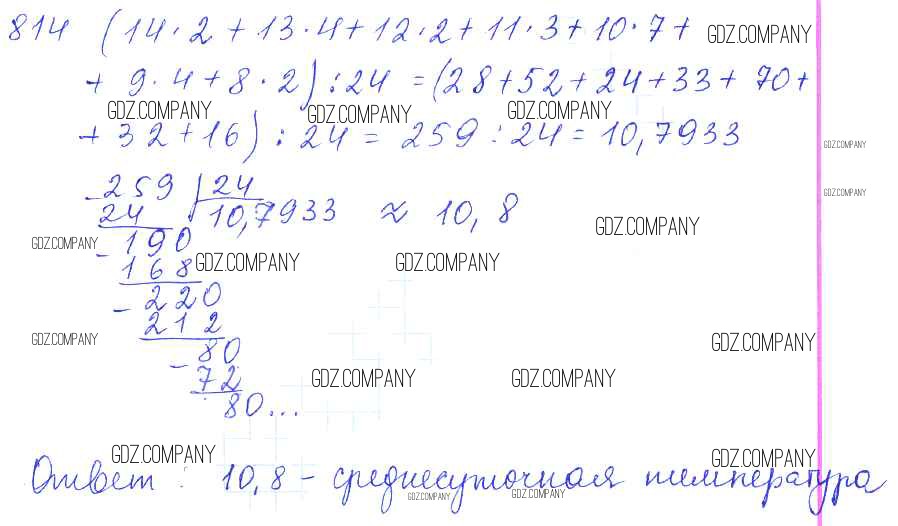 814 (14·2+13·4+12·2+11·3+10·7+ GDZ.COMPANY
+9·4+8·2):24=(28+52+24+33+70+
GDZ.COMPANY GDZ.COMPANY GDZ.COMPANY
+32+16):24=259:24=10,7933
GDZ.COMPANY
-259 | 24 GDZ.COMPANY
24 10,7933 ≈ 10,8 GDZ.COMPANY
GDZ.COMPANY -190
168 GDZ.COMPANY GDZ.COMPANY
-220
212
GDZ.COMPANY 80 GDZ.COMPANY
-72 GDZ.COMPANY GDZ.COMPANY
80...
GDZ.COMPANY GDZ.COMPANY
Ответ: 10,8 - среднесуточная температура
GDZ.COMPANY GDZ.COMPANY